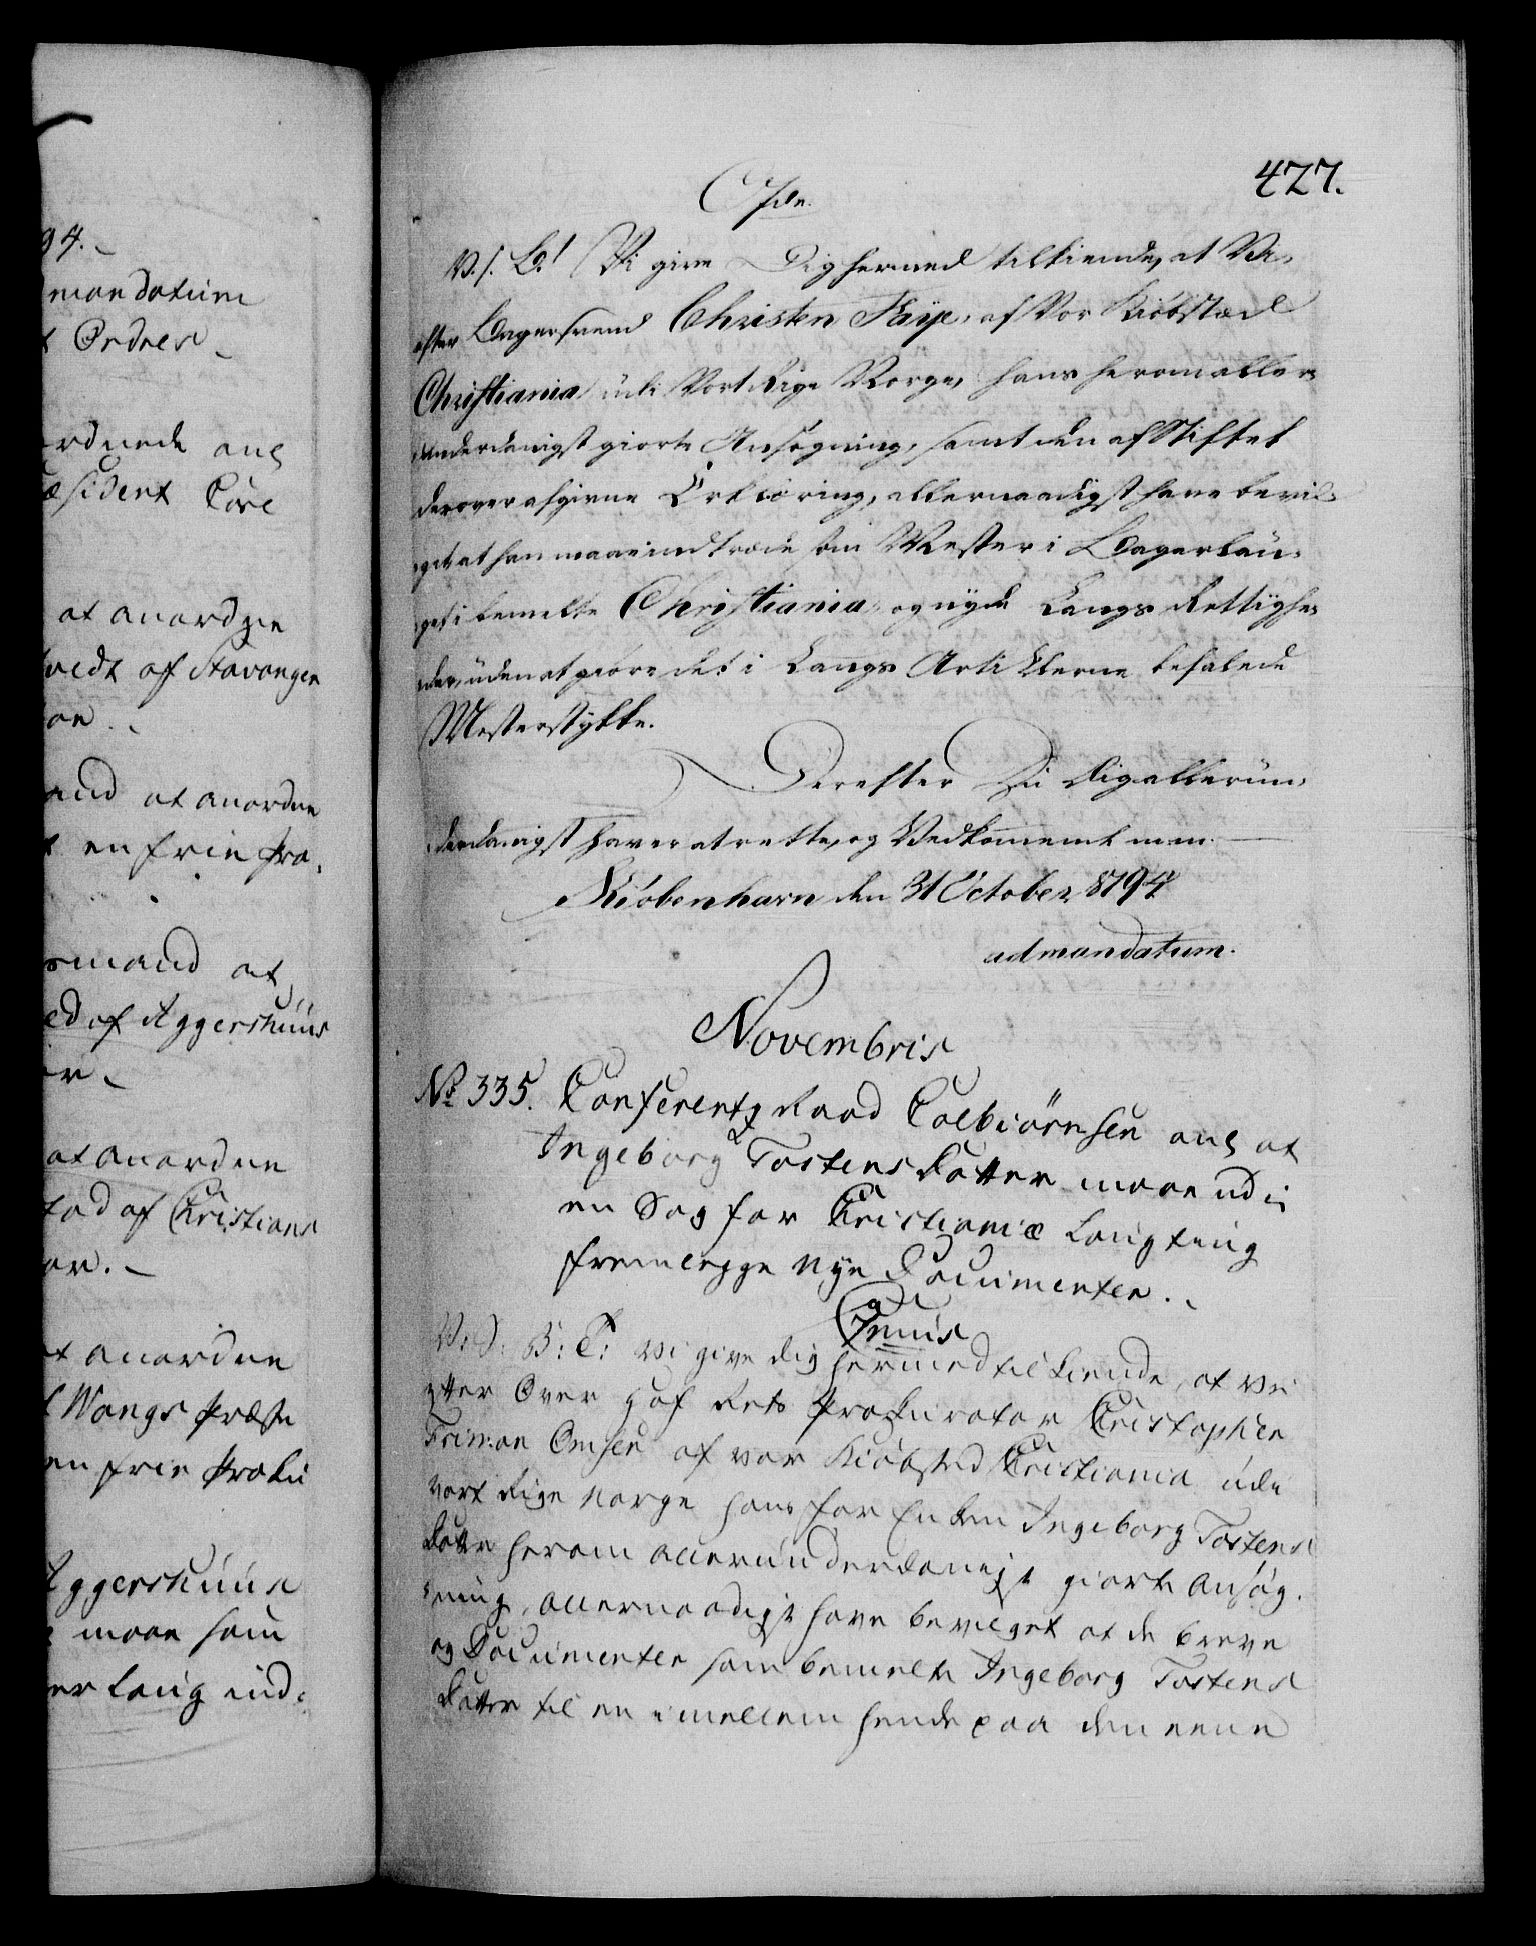 94.
mandatum
Ordres
ordnede ang
æsident Core
at anordne
vedt af Stavanger
and at anordne
en frie Pro,
mand at
ed af Aggershuus
at anordne
tad af Christians
anordne
Wangs Præste
en frie Proku
Aggershuus
maae som
er Laug ind,
427.
V. S. B.! Vi give Dig hermed tilkiende, at Vi,
efter Bagersvend Christen Faÿe, af Vor Kiöbstæd
Christiania udi Vort Rige Norge, hans herom aller
underdanigst giorte Ansøgning, samt den af Stiftet
derover afgivne Erklæring, allernaadigst have bevil,
get at han maae indtræde som Mester i Bagerlau,
get i bemelte Christiania, og nyde Laugs Rettighe,
der, uden at giøre det i Laugs Artiklerne befalede
Mesterstykke.
Derefter Du Dig allerun,
derdanigst haver at rette, og Vedkommende men.
Kiöbenhavn den 31 October 1794
ad mandatum.
Novembris
No 335. Conferentz Raad Colbiörnsen ang at
Ingeborg Tostens Datter maae udi
en Sag for Christianiæ Laugting
fremlegge nye Documenter.
V: S: B: T: Vi give dig hermed til kiende, at vi
efter Over Hof Rets Prokurator Christopher
Friman Omsen af vor Kiöbsted Christiania udi
vort Rige Norge hans for Enken Ingeborg Tostens
Datter herom allerunderdanigst giorte Ansøg,
ning, allernaadigst have bevilget at de Breve
og Documenter som bemelte Ingeborg Tostens
Datter til en imellem hende paa den eene